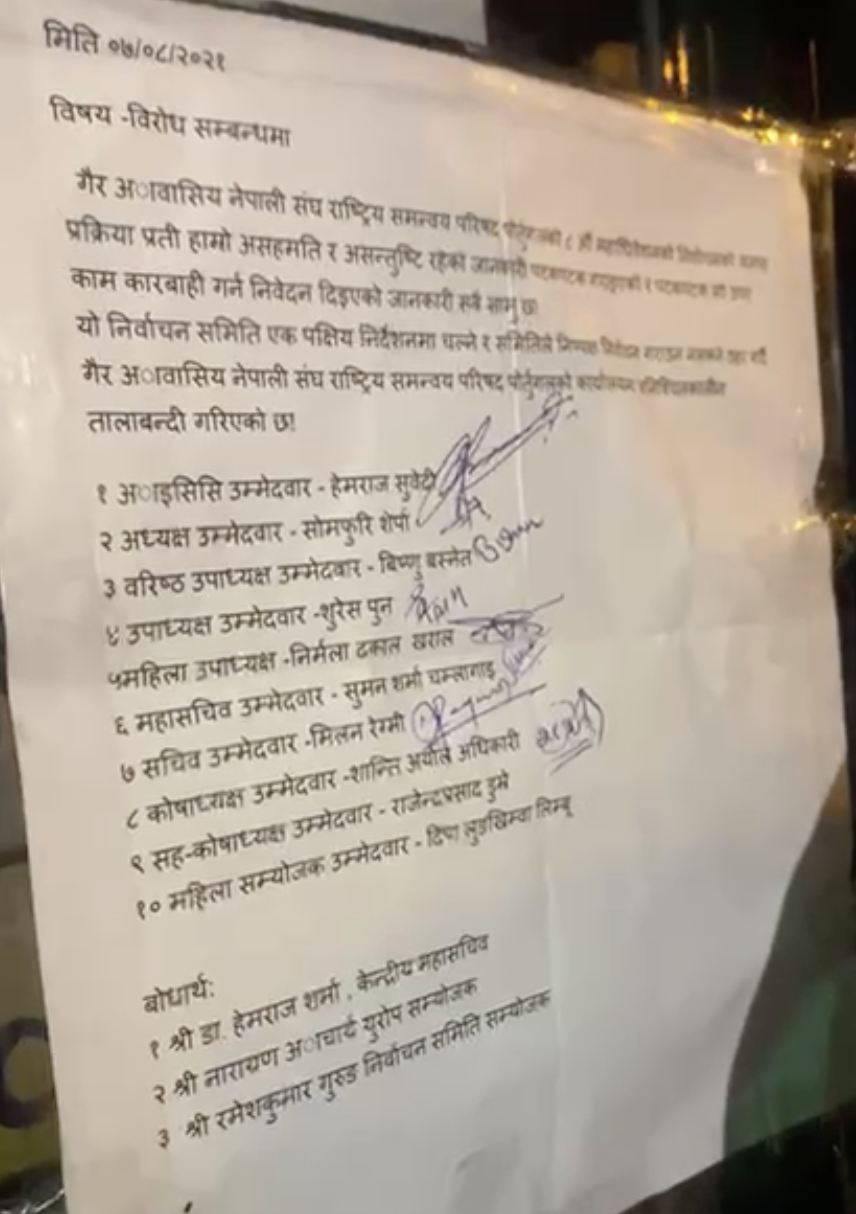 मिति ०७/०८/२०२१
विषय -विरोध सम्बन्धमा
गैर अावासिय नेपाली संघ राष्ट्रिय समन्वय परिषद पोर्तुगलको ८ औं महाधिवेशनको
प्रक्रिया प्रती हाम्रो असहमति र असन्तुष्टि रहेको जानकारी पटकपटक गराइएको र पटकपटक
काम कारबाही गर्न निवेदन दिइएको जानकारी सबै सामु छ।
यो निर्वाचन समिति एक पक्षिय निर्देशनमा चल्ने र समितिले निष्पक्ष निर्वाचन
गैर अावासिय नेपाली संघ राष्ट्रिय समन्वय परिषद पोर्तुगलको कार्यालयमा अनिश्चितकालीन
तालाबन्दी गरिएको छ।
१ अाइसिसि उम्मेदवार - हेमराज सुवेदी
२ अध्यक्ष उम्मेदवार - सोमफुरि शेर्पा
३ वरिष्ठ उपाध्यक्ष उम्मेदवार - बिष्णु बस्नेत
४ उपाध्यक्ष उम्मेदवार -शुरेस पुन
५महिला उपाध्यक्ष -निर्मला ढकाल खराल
६ महासचिव उम्मेदवार - सुमन शर्मा चम्लागाइ
७ सचिव उम्मेदवार -मिलन रेग्मी
८ कोषाध्यक्ष उम्मेदवार -शान्ति अर्याल अधिकारी
९ सह-कोषाध्यक्ष उम्मेदवार - राजेन्द्रप्रसाद डुम्रे
१० महिला सम्योजक उम्मेदवार - दिपा लिम्बू
बोधार्थ:
१ श्री डा. हेमराज शर्मा , केन्द्रीय महासचिव
२ श्री नारायण अाचार्य युरोप सम्योजक
३ श्री रमेशकुमार गुरुङ निर्वाचन समिति सम्योजक